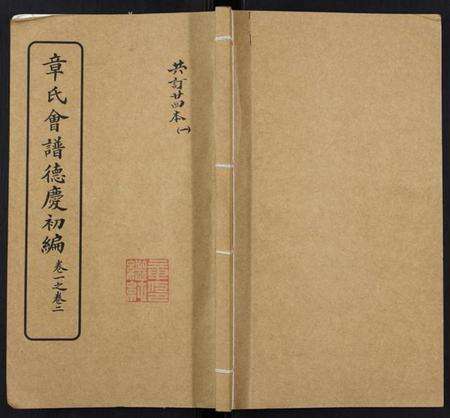 共訂廿四本
(一)
章氏會譜德慶初編
卷一之卷二